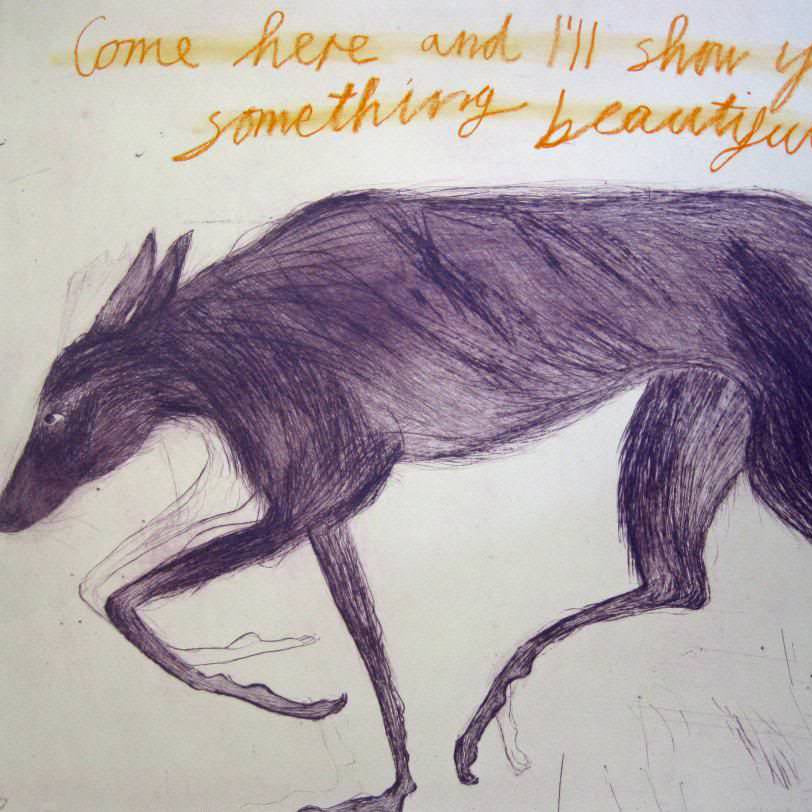 Come here and I'll show y
something beautifu